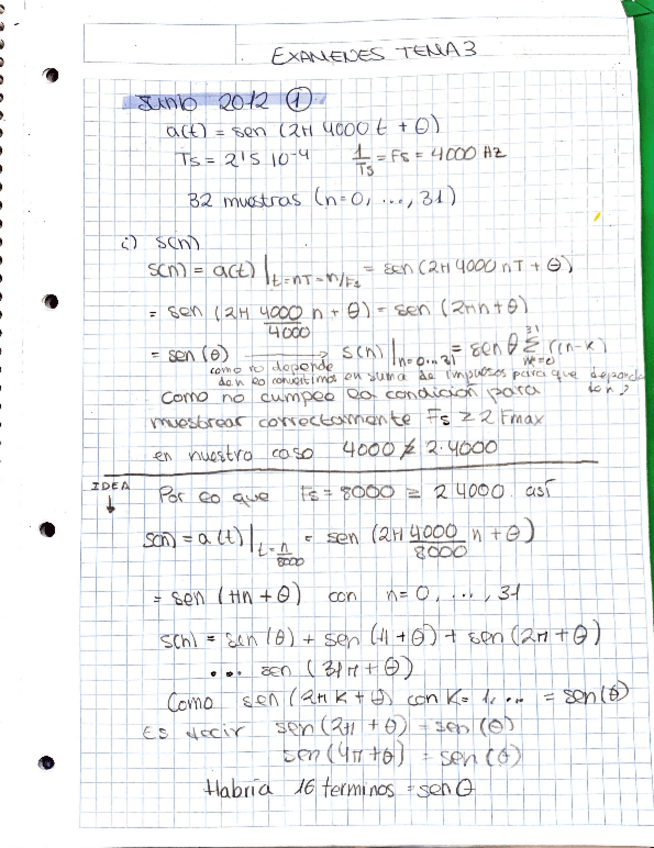 EXAMENES TEMA 3
Junio 2012 ①
a(t) = sen (2π 4000 t + θ)
Ts = 2'5 10⁻⁴ 1/Ts = Fs = 4000 Hz
32 muestras (n=0, ..., 31)
i) s(n)
s(n) = a(t) |t=nT=n/Fs = sen (2π 4000 nT + θ)
= sen (2π 4000/4000 n + θ) = sen (2πn + θ)
= sen (θ) → s(n) |n=0...31 = senθ Σ³¹ δ(n-k)
como no depende
de n lo convertimos en suma de impulsos para que dependa
de n?
Como no cumple la condición para
muestrear correctamente Fs ≥ 2 Fmax
en nuestro caso 4000 ≱ 2·4000
IDEA ↓ Por lo que Fs = 8000 ≥ 2 4000 así
s(n) = a(t) |t=n/8000 = sen (2π 4000/8000 n + θ)
= sen (πn + θ) con n= 0, ..., 31
s(n) = sen (θ) + sen (π + θ) + sen (2π + θ)
... sen (31π + θ)
Como sen (2πk + θ) con k= 1, ... = sen (θ)
Es decir sen (2π + θ) = sen (θ)
sen (4π + θ) = sen (θ)
Habría 16 terminos = sen θ